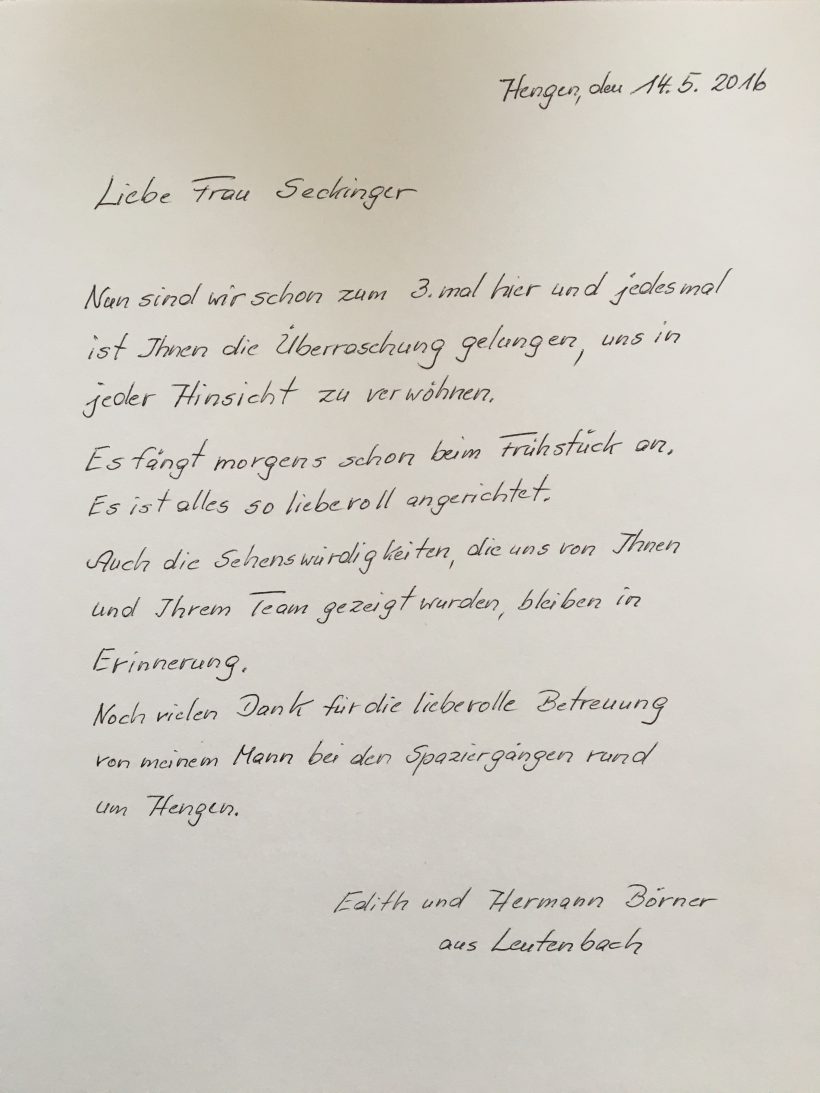 Hengen, den 14.5. 2016
Liebe Frau Seckinger
Nun sind wir schon zum 3. mal hier und jedesmal
ist Ihnen die Überraschung gelungen, uns in
jeder Hinsicht zu verwöhnen.
Es fängt morgens schon beim Frühstück an.
Es ist alles so liebevoll angerichtet.
Auch die Sehenswürdigkeiten, die uns von Ihnen
und Ihrem Team gezeigt wurden, bleiben in
Erinnerung.
Noch vielen Dank für die liebevolle Betreuung
von meinem Mann bei den Spaziergängen rund
um Hengen.
Edith und Hermann Börner
aus Leutenbach